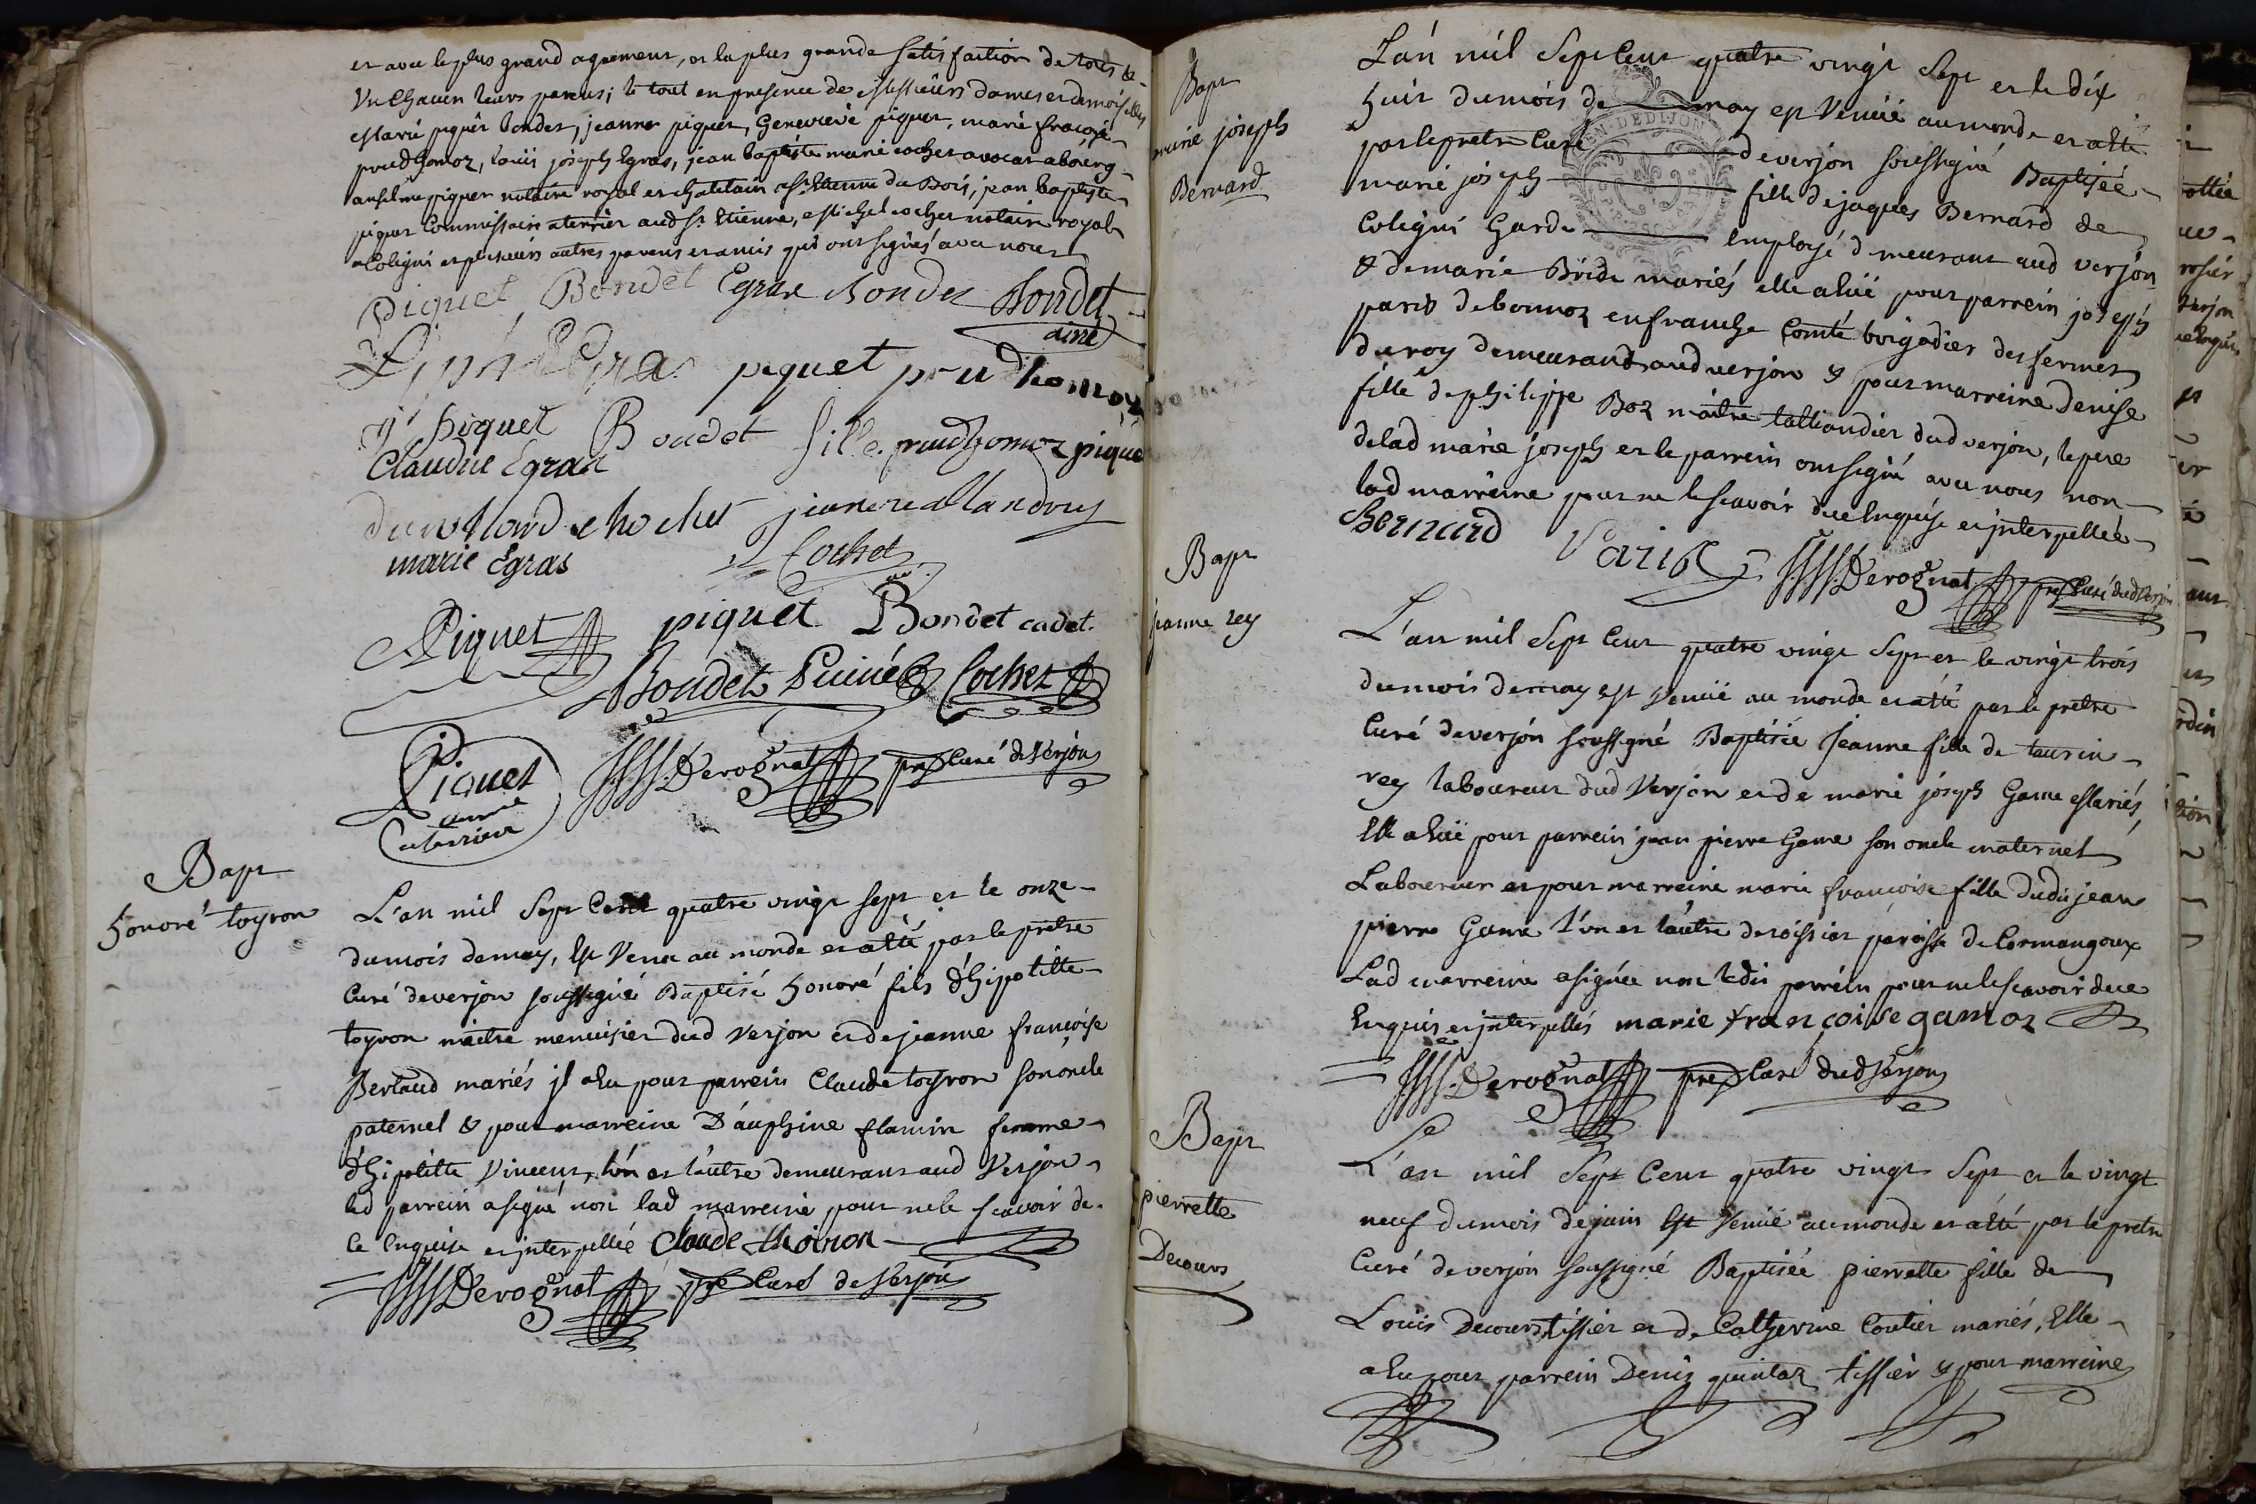 et avec le plus grand agrement, et la plus grande satisfaction de tous &
Un Chacun leurs parens; le tout en presence de Messieurs dames et demoiselles
Marie piquet bondet, jeanne piquet, Genevieve piquet, marie francoise
prudhomoz, Louis joseph Egras, jean baptiste marie cochet avocat abourg
anselme piquet notaire royal et chatelain a St Etienne du Bois, jean baptiste
piquet Commissaire aterrier aud St Etienne, Michel cochet notaire royal
a Coligni et plusieurs autres parens et amis qui ont signés avec nous
Piquet Bondet Egras Bondet Bondet
ainé
Egras piquet prudhomoz
piquet Bondet fille prudhomoz piquet
Claudie Egras
chochet jeanne
marie Egras Cochet
av.
Piquet piquet Bondet cadet
Bondet Puiné Cochet
Piquet Derognat pre Curé de Verjon
Bapt
honoré toyron
L'an mil Sept Cent quatre vingt sept et le onze
du mois de may, Est Venu au monde et a été par le prêtre
Curé de verjon soussigné Baptisé honoré fils d'hipolitte
toyron maître menuisier dud Verjon et de jeanne francoise
Bertaud mariés jl a Eu pour parrein Claude toyron son oncle
paternel & pour marreine Dauphine flamin femme
d'hipolitte Vincent, l'un et l'autre demeurant aud Verjon
led parrein a signé non lad marreine pour ne le scavoir de
Ce Enquise et jnterpellée Claude thoiron
Derognat pre Curé de Verjon
Bapt
marie joseph
Bernard
L'an mil Sept Cent quatre vingt Sept et le dix
huit du mois de may est Venüe au monde et a été
par le prêtre Curé de verjon soussigné Baptisée
marie joseph fille de jaques Bernard de
Coligni Garde Employé demeurant aud verjon
& de marie Bride mariés elle a Eüe pour parrein joseph
paris de bonnoz en franche Comté brigadier des fermes
du roy demeurant aud verjon & pour marreine denise
fille de philippe Boz maître talliandier dud verjon, le pere
de lad marie joseph et le parrein ont signé avec nous non
lad marreine pour ne le scavoir de ce Enquise et jnterpellée
Bernard Paris Derognat pre Curé dud Verjon
Bapt
jeanne rey
L'an mil Sept Cent quatre vingt Sept et le vingt trois
du mois de may est Venüe au monde et a été par le prêtre
Curé de verjon soussigné Baptisée Jeanne fille de taurin
rey laboureur dud Verjon et de marie joseph Game Mariés,
Elle a Eüe pour parrein jean pierre Game son oncle maternel
Laboureur et pour marreine marie francoise fille dudit jean
pierre Game l'un et l'autre de roissiat paroisse de Cormangoux
Lad marreine a signée non ledit parrein pour ne le scavoir de ce
Enquis et jnterpellés marie françoise gamoz
Derognat pre Curé dud Verjon
Bapt
pierrette
Decours
L'an mil Sept Cent quatre vingt Sept et le vingt
neuf du mois de juin Est Venüe au monde et a été par le prêtre
Curé de verjon soussigné Baptisée pierrette fille de
Louis Decours tissier et de Catherine Coutier mariés, Elle
a Eu pour parrein Denis quintaz tissier & pour marreine